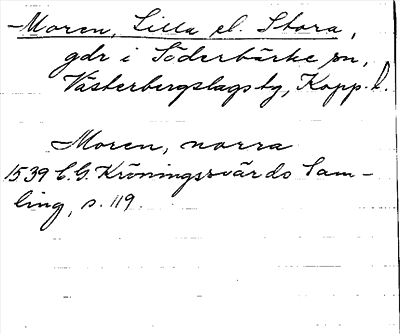 Moren, Lilla el. Stora,
gdr i Söderbärke sn,
Västerbergslags tg, Kopp. l.
Moren, norra
1539 C. G. Kröningssvärds Sam-
ling, s. 119.